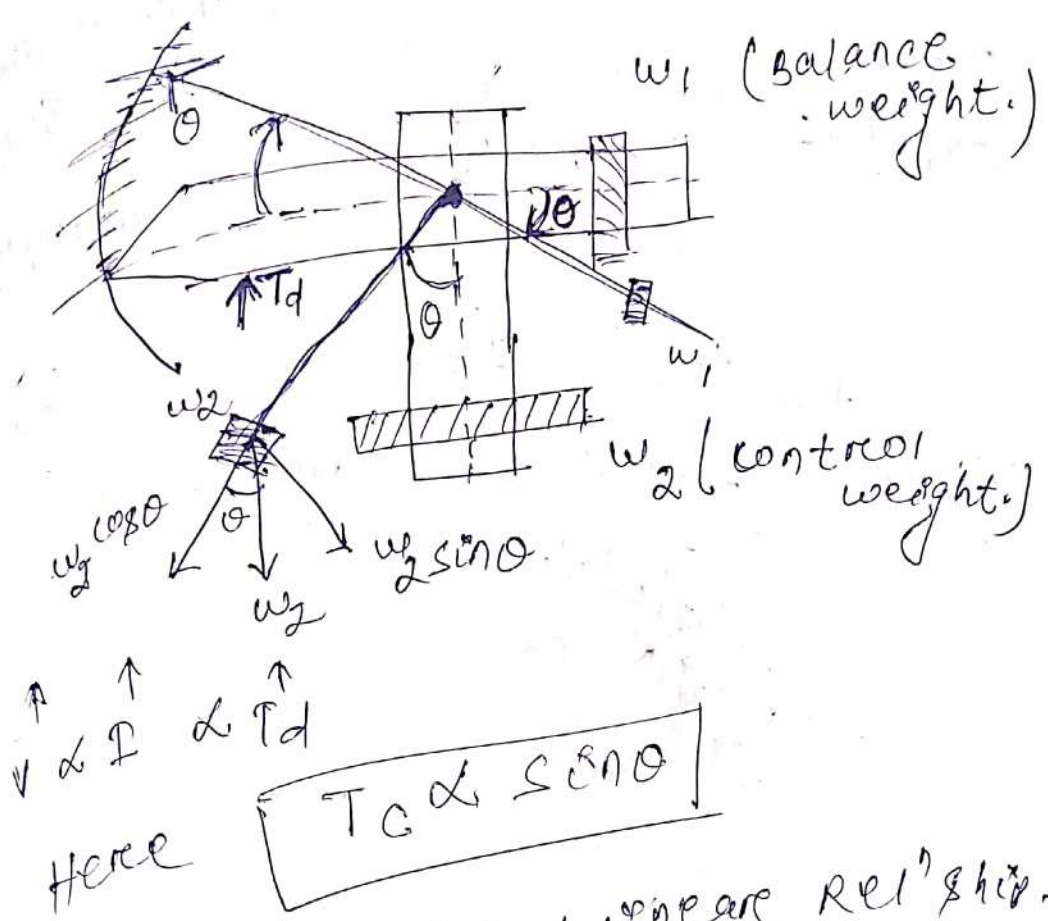 w1 (Balance
weight.)
θ
θ
Td
θ
w1
w2
w2 (control
weight.)
w2 cosθ
θ
w2
w2 sinθ
V ∝ I ∝ Td
Here
Tc ∝ sinθ
Rel^n ship.